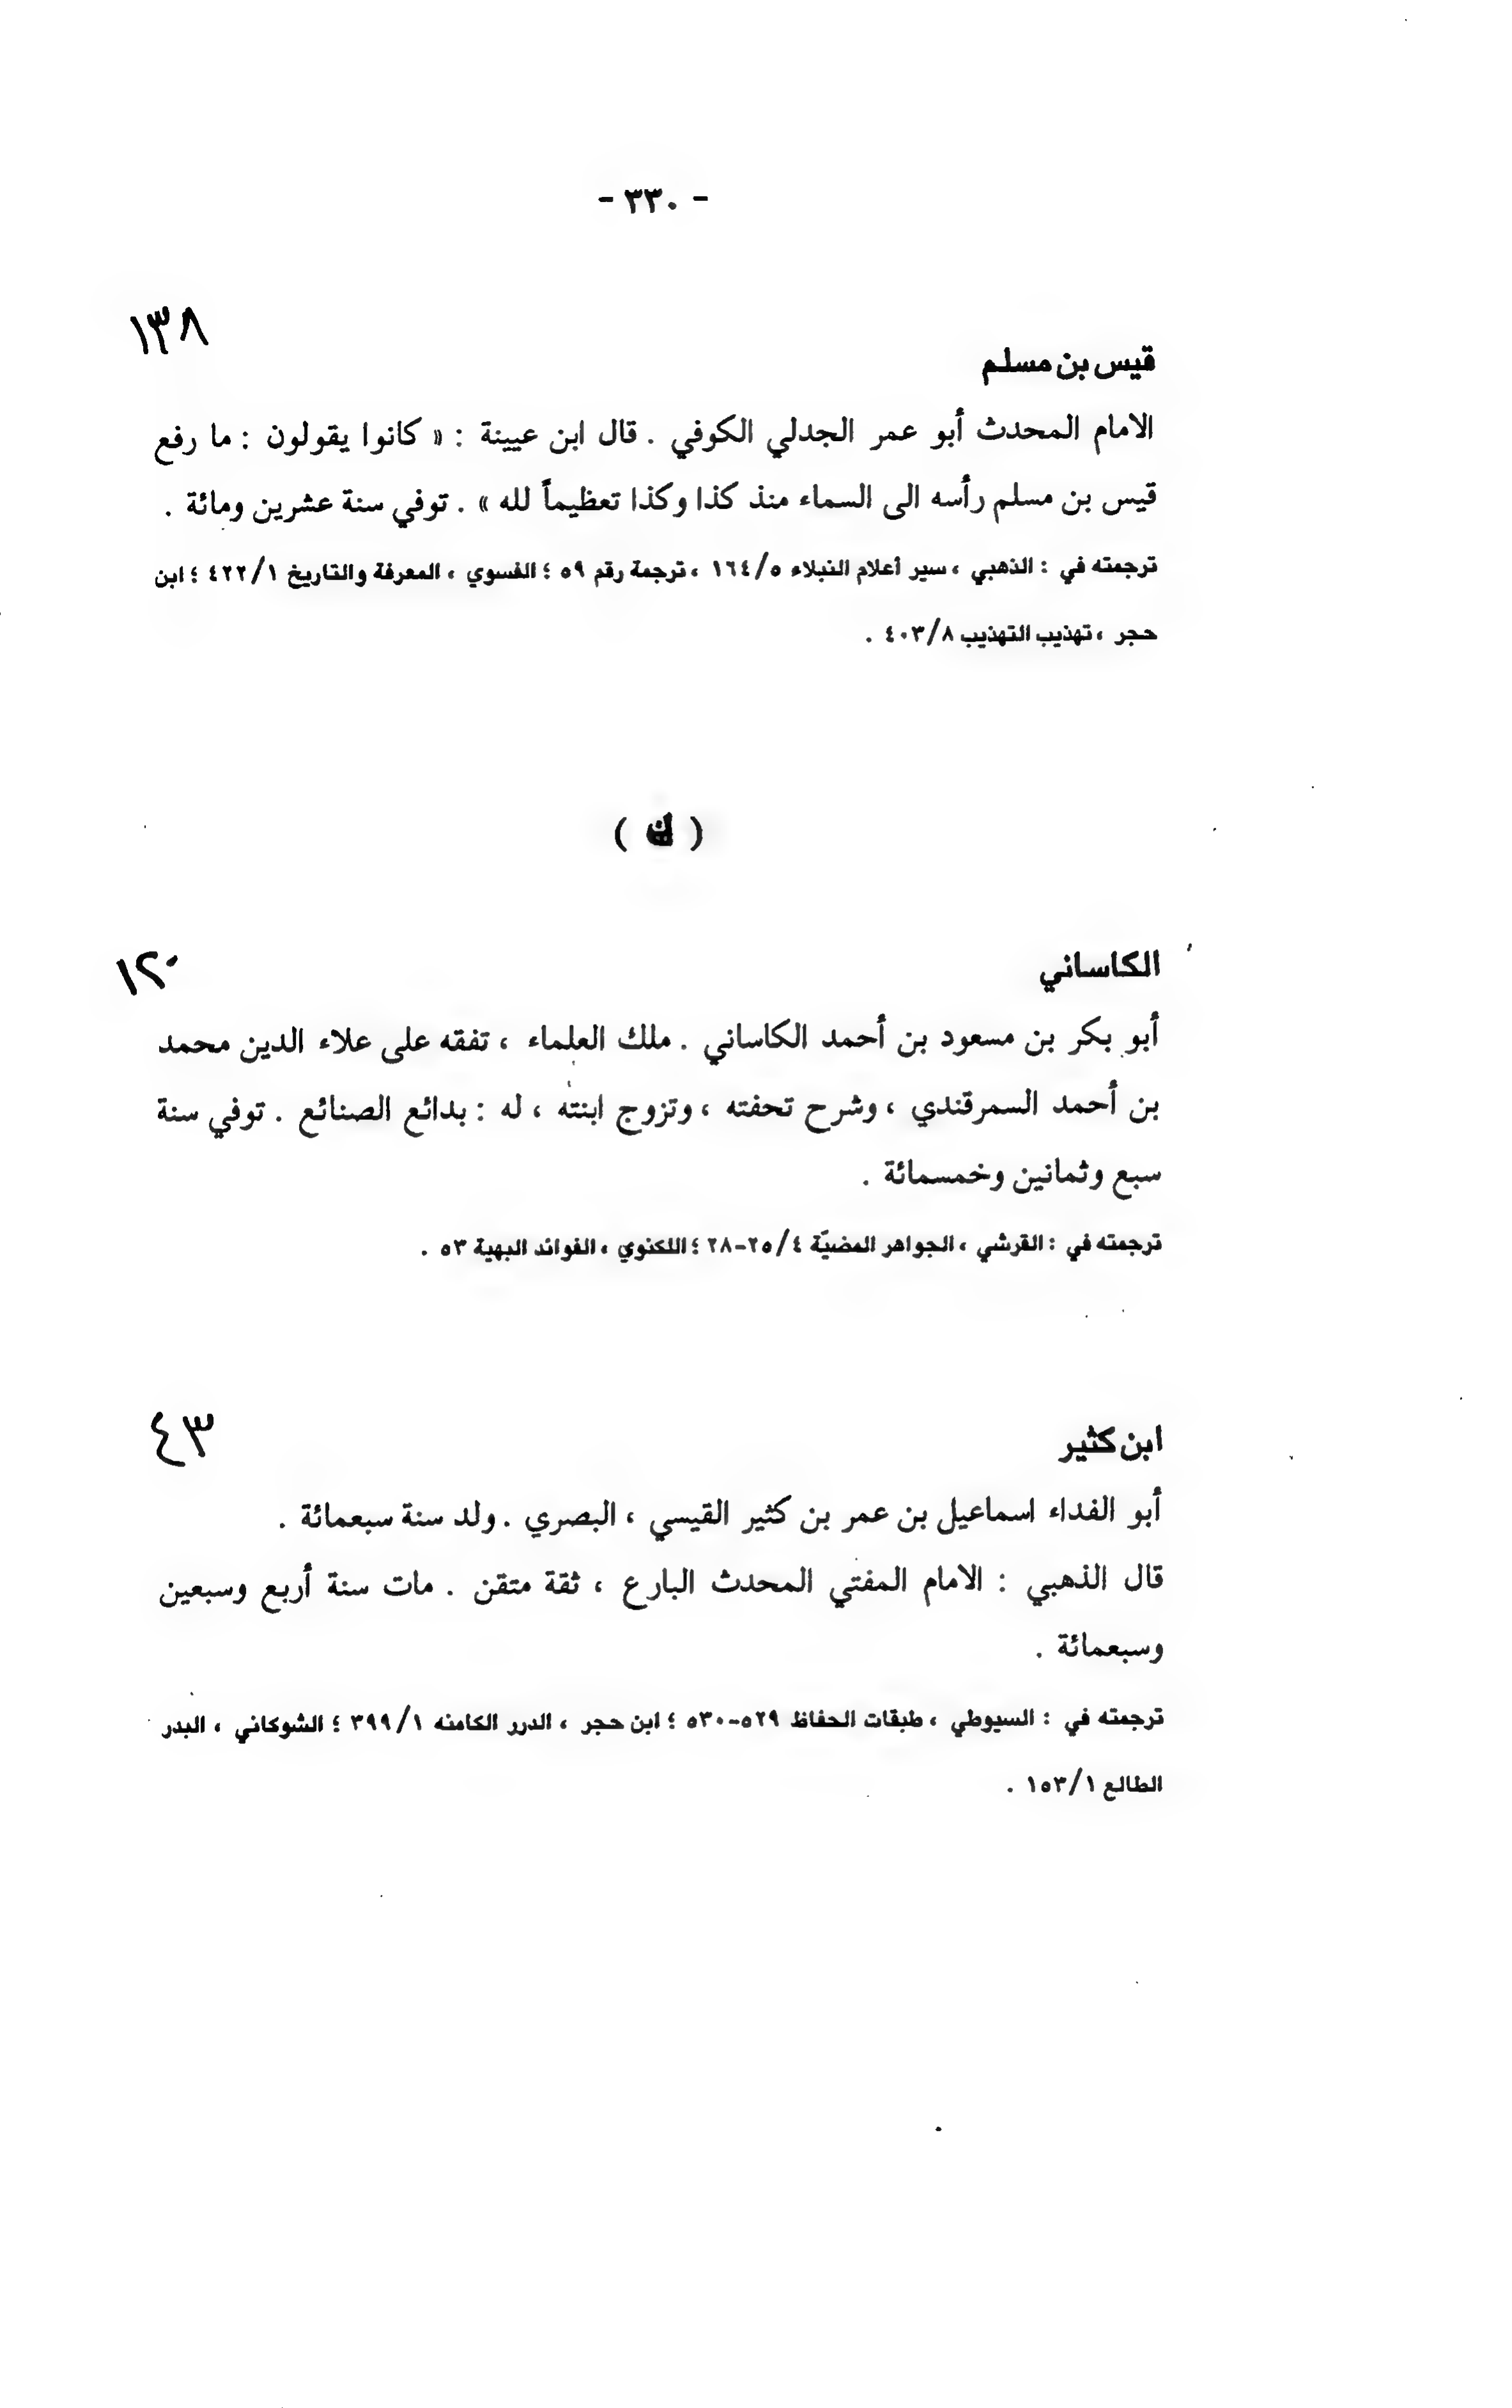 - ٣٣٠ -
١٣٨
قيس بن مسلم
الامام المحدث أبو عمر الجدلي الكوفي . قال ابن عيينة : « كانوا يقولون : ما رفع
قيس بن مسلم رأسه الى السماء منذ كذا وكذا تعظيماً لله » . توفي سنة عشرين ومائة .
ترجمته في : الذهبي ، سير أعلام النبلاء ١٦٤/٥ ، ترجمة رقم ٥٩ ؛ الفسوي ، المعرفة والتاريخ ٤٢٢/١ ؛ ابن
حجر ، تهذيب التهذيب ٤٠٣/٨ .
( ك )
١٢٠
الكاساني
أبو بكر بن مسعود بن أحمد الكاساني . ملك العلماء ، تفقه على علاء الدين محمد
بن أحمد السمرقندي ، وشرح تحفته ، وتزوج ابنته ، له : بدائع الصنائع . توفي سنة
سبع وثمانين وخمسمائة .
ترجمته في : القرشي ، الجواهر المضيّة ٢٥/٤-٢٨ ؛ اللكنوي ، الفوائد البهية ٥٣ .
٤٣
ابن كثير
أبو الفداء اسماعيل بن عمر بن كثير القيسي ، البصري . ولد سنة سبعمائة .
قال الذهبي : الامام المفتي المحدث البارع ، ثقة متقن . مات سنة أربع وسبعين
وسبعمائة .
ترجمته في : السيوطي ، طبقات الحفاظ ٥٢٩-٥٣٠ ؛ ابن حجر ، الدرر الكامنه ٣٩٩/١ ؛ الشوكاني ، البدر
الطالع ١٥٣/١ .